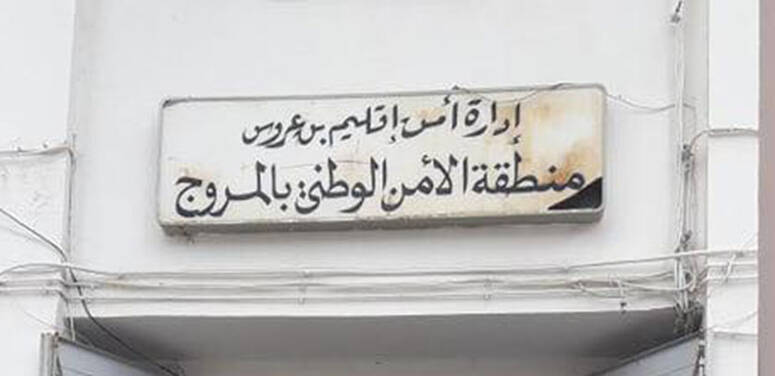 إدارة أمن إقليم بن عروس
منطقة الأمن الوطني بالمروج